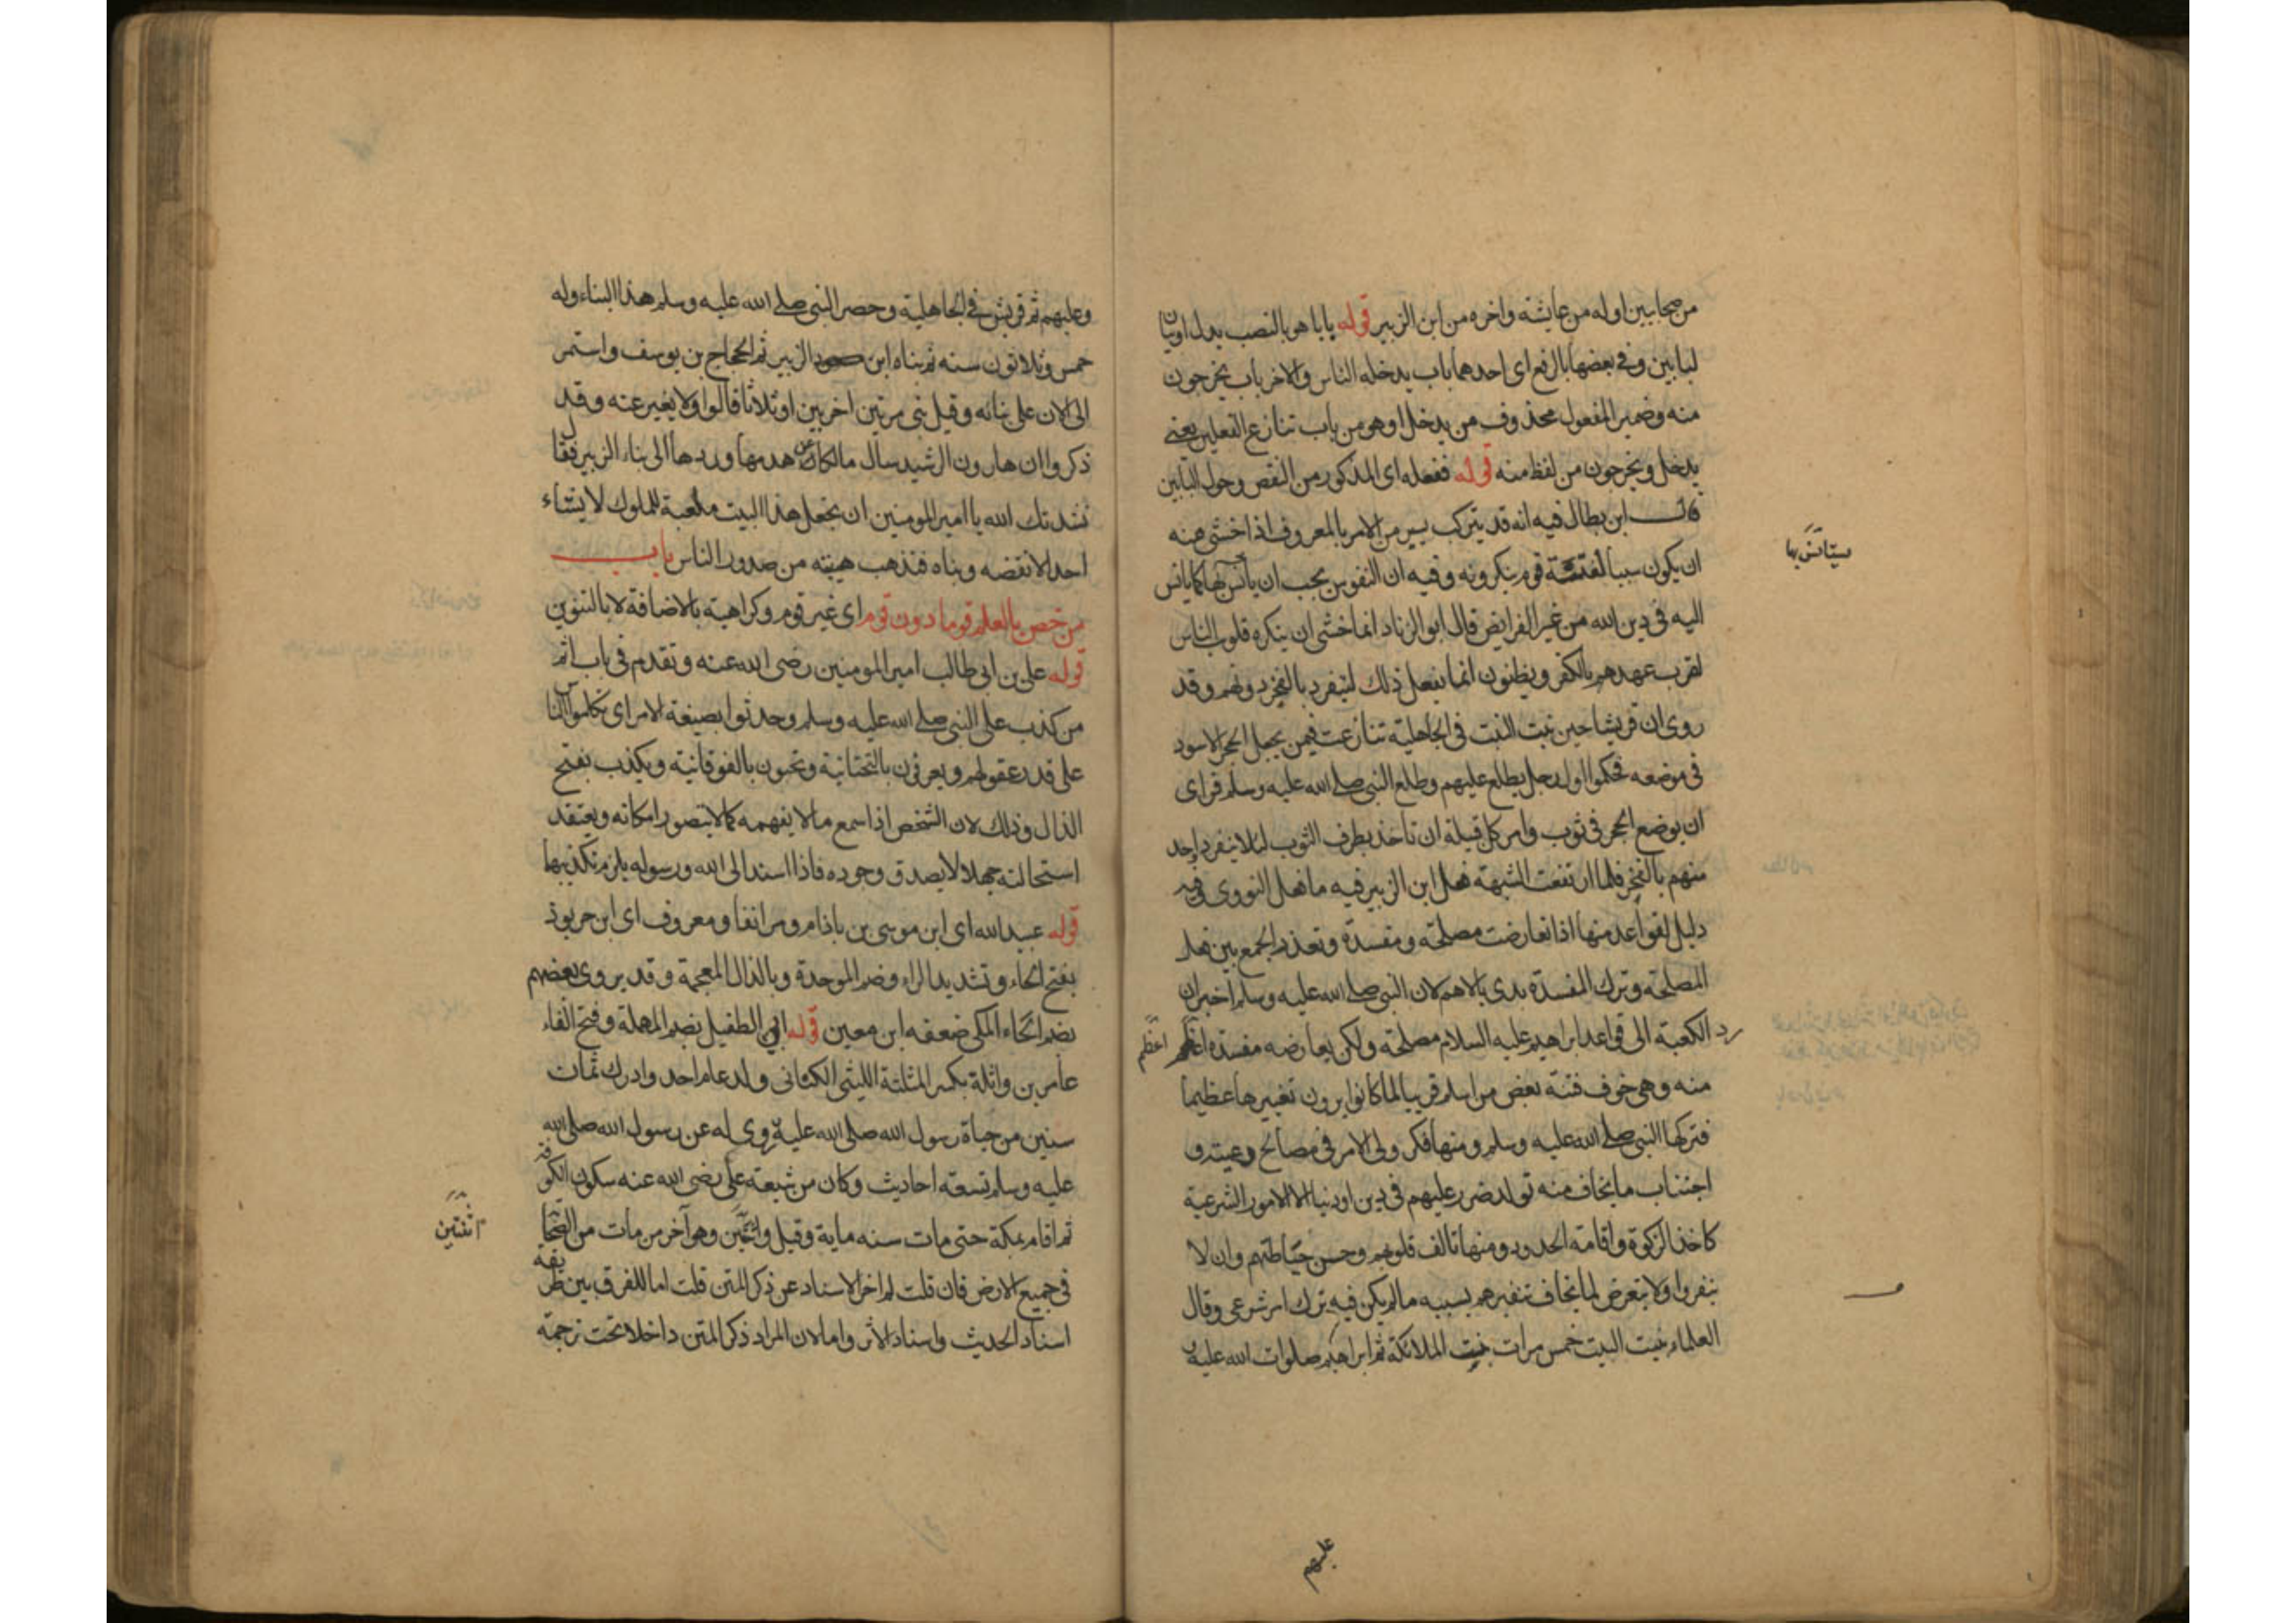 من صحابيين اوله من عايشة واخره من ابن الزبير قوله بابا هو بالنصب بدل او بيان
لبابين وفي بعضها بالرفع اى احدهما باب يدخله الناس والاخر باب يخرجون
منه وضمير المفعول محذوف من يدخل او هو من باب تنازع الفعلين يعنى
يدخل ويخرجون من لفظ منه قوله ففعله اى المذكور من النقص وحول البابين
قال ابن بطال فيه انه قد يترك يسير من الامر بالمعروف اذا خشى منه
ان يكون سببا لفتنة قوم ينكرونه وفيه ان النفوس يحب ان يأنس بها كما يانس
ستأنس بها
اليه في دين الله من غير الفرايض قال ابو الزناد انما خشى ان ينكره قلوب الناس
لقرب عهدهم بالكفر ويظنون انما يفعل ذلك لينفرد بالفخر دونهم وقد
روى ان قريشا حين بنت البيت في الجاهلية تنازعت فيمن يجعل الحجر الاسود
في موضعه فحكموا اول رجل يطلع عليهم وطلع النبي صلى الله عليه وسلم فراى
ان يوضع الحجر في ثوب وامر كل قبيلة ان تاخذ بطرف الثوب لئلا ينفرد واحد
منهم بالفخر فلما ارتفعت الشبهة فعل ابن الزبير فيه ما فعل النووى فيه
دليل لقواعد منها اذا تعارضت مصلحة ومفسدة وتعذر الجمع بين فعل
المصلحة وترك المفسدة بدى بالاهم لان النبي صلى الله عليه وسلم اخبر ان
رد الكعبة الى قواعد ابراهيم عليه السلام مصلحة ولكن يعارضه مفسدة اعظم اعظم
منه وهى خوف فتنة بعض من اسلم قريبا لما كانوا يرون تغييرها عظيما
فتركها النبي صلى الله عليه وسلم ومنها فكر ولى الامر في مصالح رعيته و
اجتناب ما يخاف منه تولد ضرر عليهم في دين او دنيا الا الامور الشرعية
كاخذ الزكوة واقامة الحدود ومنها تالف قلوبهم وحسن حياطتهم وان لا
ينفروا ولا يتعرض لما يخاف تنفيرهم بسببه ما لم يكن فيه ترك امر شرعى وقال
العلماء بنيت البيت خمس مرات بنت الملائكة ثم ابراهيم صلوات الله عليه
عليهم
وعليهم ثم قريش في الجاهلية وحضر النبي صلى الله عليه وسلم هذا البناء وله
خمس وثلاثون سنه ثم بناه ابن الزبير ثم الحجاج بن يوسف واستمر
الى الان على بنائه وقيل بنى مرتين آخريين او ثلاثا قالوا ولا يغير عنه وقد
ذكروا ان هارون الرشيد سال مالكا عن هدمها وردها الى بناء الزبير فقال
نشدتك الله يا امير المومنين ان تجعل هذا البيت ملعبة للملوك لا يشاء
احد الا نقضه وبناه فتذهب هيبته من صدور الناس باب
من خص بالعلم قوما دون قوم اى غير قوم وكراهية بالاضافة لا بالتنوين
قوله على بن ابى طالب امير المومنين رضى الله عنه وتقدم في باب اثم
من كذب على النبي صلى الله عليه وسلم وحدثوا بصيغة الامر اى تكلموا الناس
على قدر عقولهم ويعرفون بالتحتانية وتحبون بالفوقانية ويكذب بفتح
الذال وذلك لان الشخص اذا سمع ما لا يفهمه كما لا يتصور امكانه ويعتقد
استحالته جهلا لا يصدق وجوده فاذا اسند الى الله ورسوله يلزم تكذيبها
قوله عبيد الله اى ابن موسى بن باذام ومر انفا ومعروف اى ابن خربوذ
بفتح الخاء وتشديد الراء وضم الموحدة وبالذال المعجمة وقد يروى بعضهم
بضم الخاء المكى ضعفه ابن معين قوله ابى الطفيل بضم المهملة وفتح الفاء
عامر بن واثلة بكسر المثلثة الليثى الكنانى ولد عام احد وادرك ثمان
سنين من حياة رسول الله صلى الله عليه روى له عن رسول الله صلى الله
عليه وسلم تسعة احاديث وكان من شيعة على رضى الله عنه سكون الكوفة
ثم اقام بمكة حتى مات سنه ماية وقيل واثنتين وهو آخر من مات من الصحابة
اثنتين
في جميع الارض فان قلت لم اخر الاسناد عن ذكر المتن قلت اما للفرق بين طريقة
اسناد الحديث واسناد الاثر واما لان المراد ذكر المتن داخلا تحت ترجمة